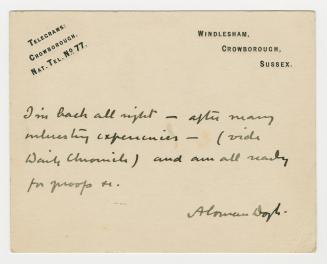 Telegrams:
Crowborough.
Nat. Tel. No 77.
Windlesham,
Crowborough,
Sussex.
I'm back all right — after many
interesting experiences — (vide
Daily Chronicle) and am all ready
for proofs &c.
A Conan Doyle.